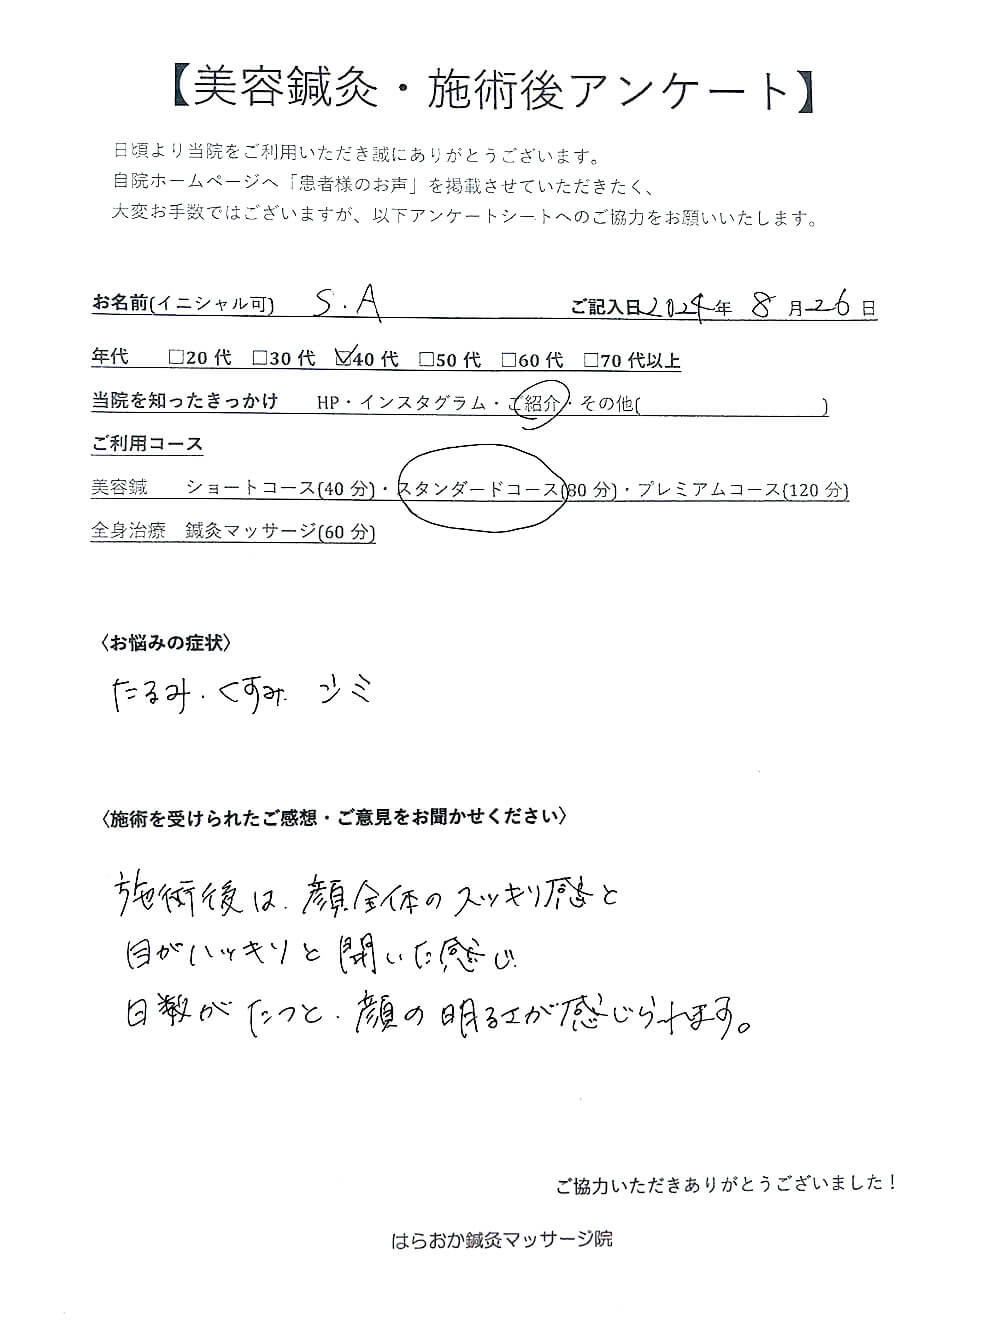 【美容鍼灸・施術後アンケート】
日頃より当院をご利用いただき誠にありがとうございます。
自院ホームページへ「患者様のお声」を掲載させていただきたく、
大変お手数ではございますが、以下アンケートシートへのご協力をお願いいたします。
お名前(イニシャル可) S.A ご記入日2024年 8月26日
年代 □20代 □30代 ☑40代 □50代 □60代 □70代以上
当院を知ったきっかけ HP・インスタグラム・ご紹介・その他( )
ご利用コース
美容鍼 ショートコース(40分)・スタンダードコース(80分)・プレミアムコース(120分)
全身治療 鍼灸マッサージ(60分)
〈お悩みの症状〉
たるみ.くすみ. シミ
〈施術を受けられたご感想・ご意見をお聞かせください〉
施術後は.顔全体のスッキリ感と
目がハッキリと開いた感じ.
日数がたつと.顔の明るさが感じられます。
ご協力いただきありがとうございました！
はらおか鍼灸マッサージ院